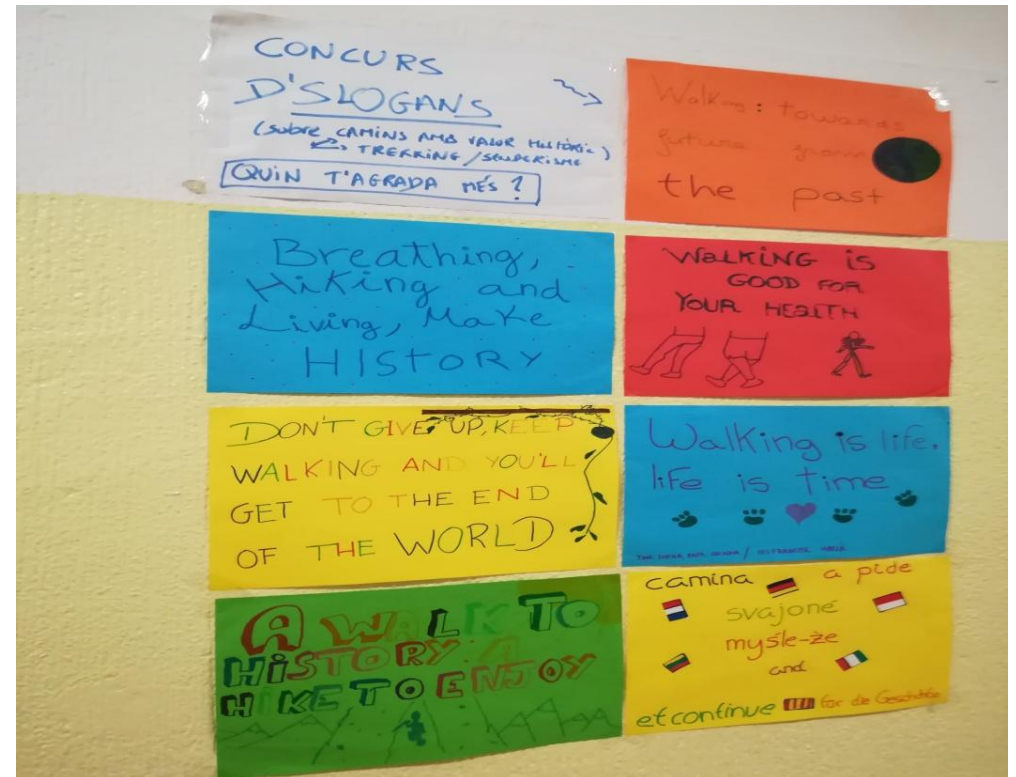 CONCURS
D'SLOGANS
(sobre CAMINS AMB VALOR HISTÒRIC)
TREKKING / SENDERISME
QUIN T'AGRADA MÉS?
Walking: towards
future from
the past
Breathing,
Hiking and
Living, Make
HISTORY
WALKING is
GOOD FOR
YOUR HEALTH
DON'T GIVE UP, KEEP
WALKING AND YOU'LL
GET TO THE END
OF THE WORLD
Walking is life.
life is time
A WALK TO
HISTORY A
HIKE TO ENJOY
camina a pide
svajonė
myśle-że
and
et continue for die Geschichte